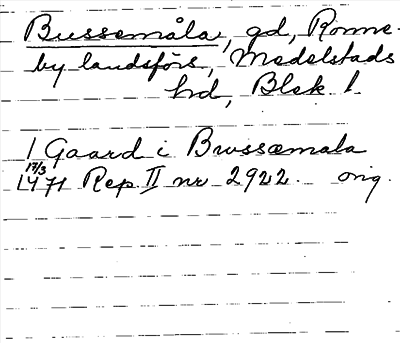 Bussemåla, gd, Ronne-
by landsförs, Medelstads
hd, Blek l.
1 Gaard i Brwssæmala
17/3
1471 Rep II nr 2922. orig.